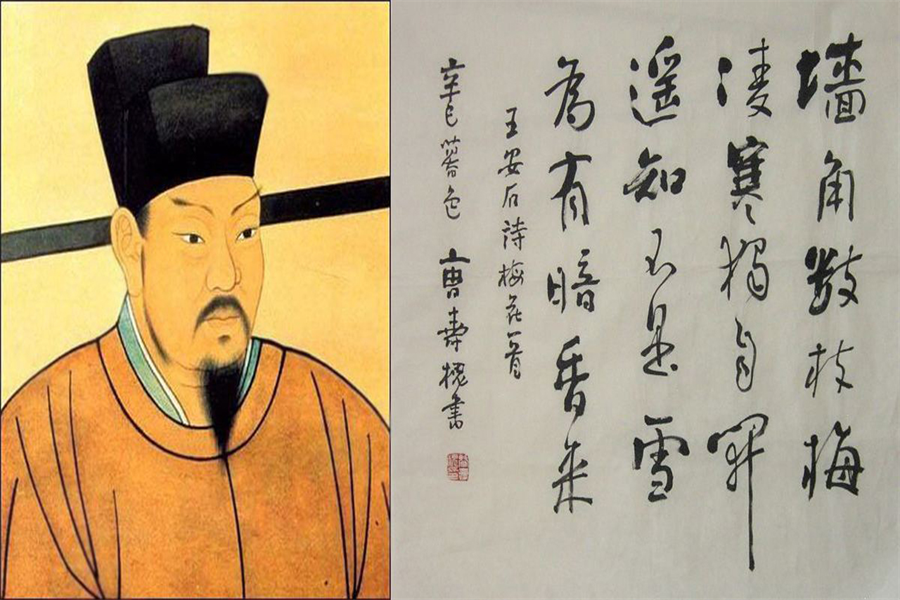 墙角數枝梅
凌寒獨自開
遥知不是雪
為有暗香来
王安石詩梅花一首
辛巳暮色 曹壽槐書